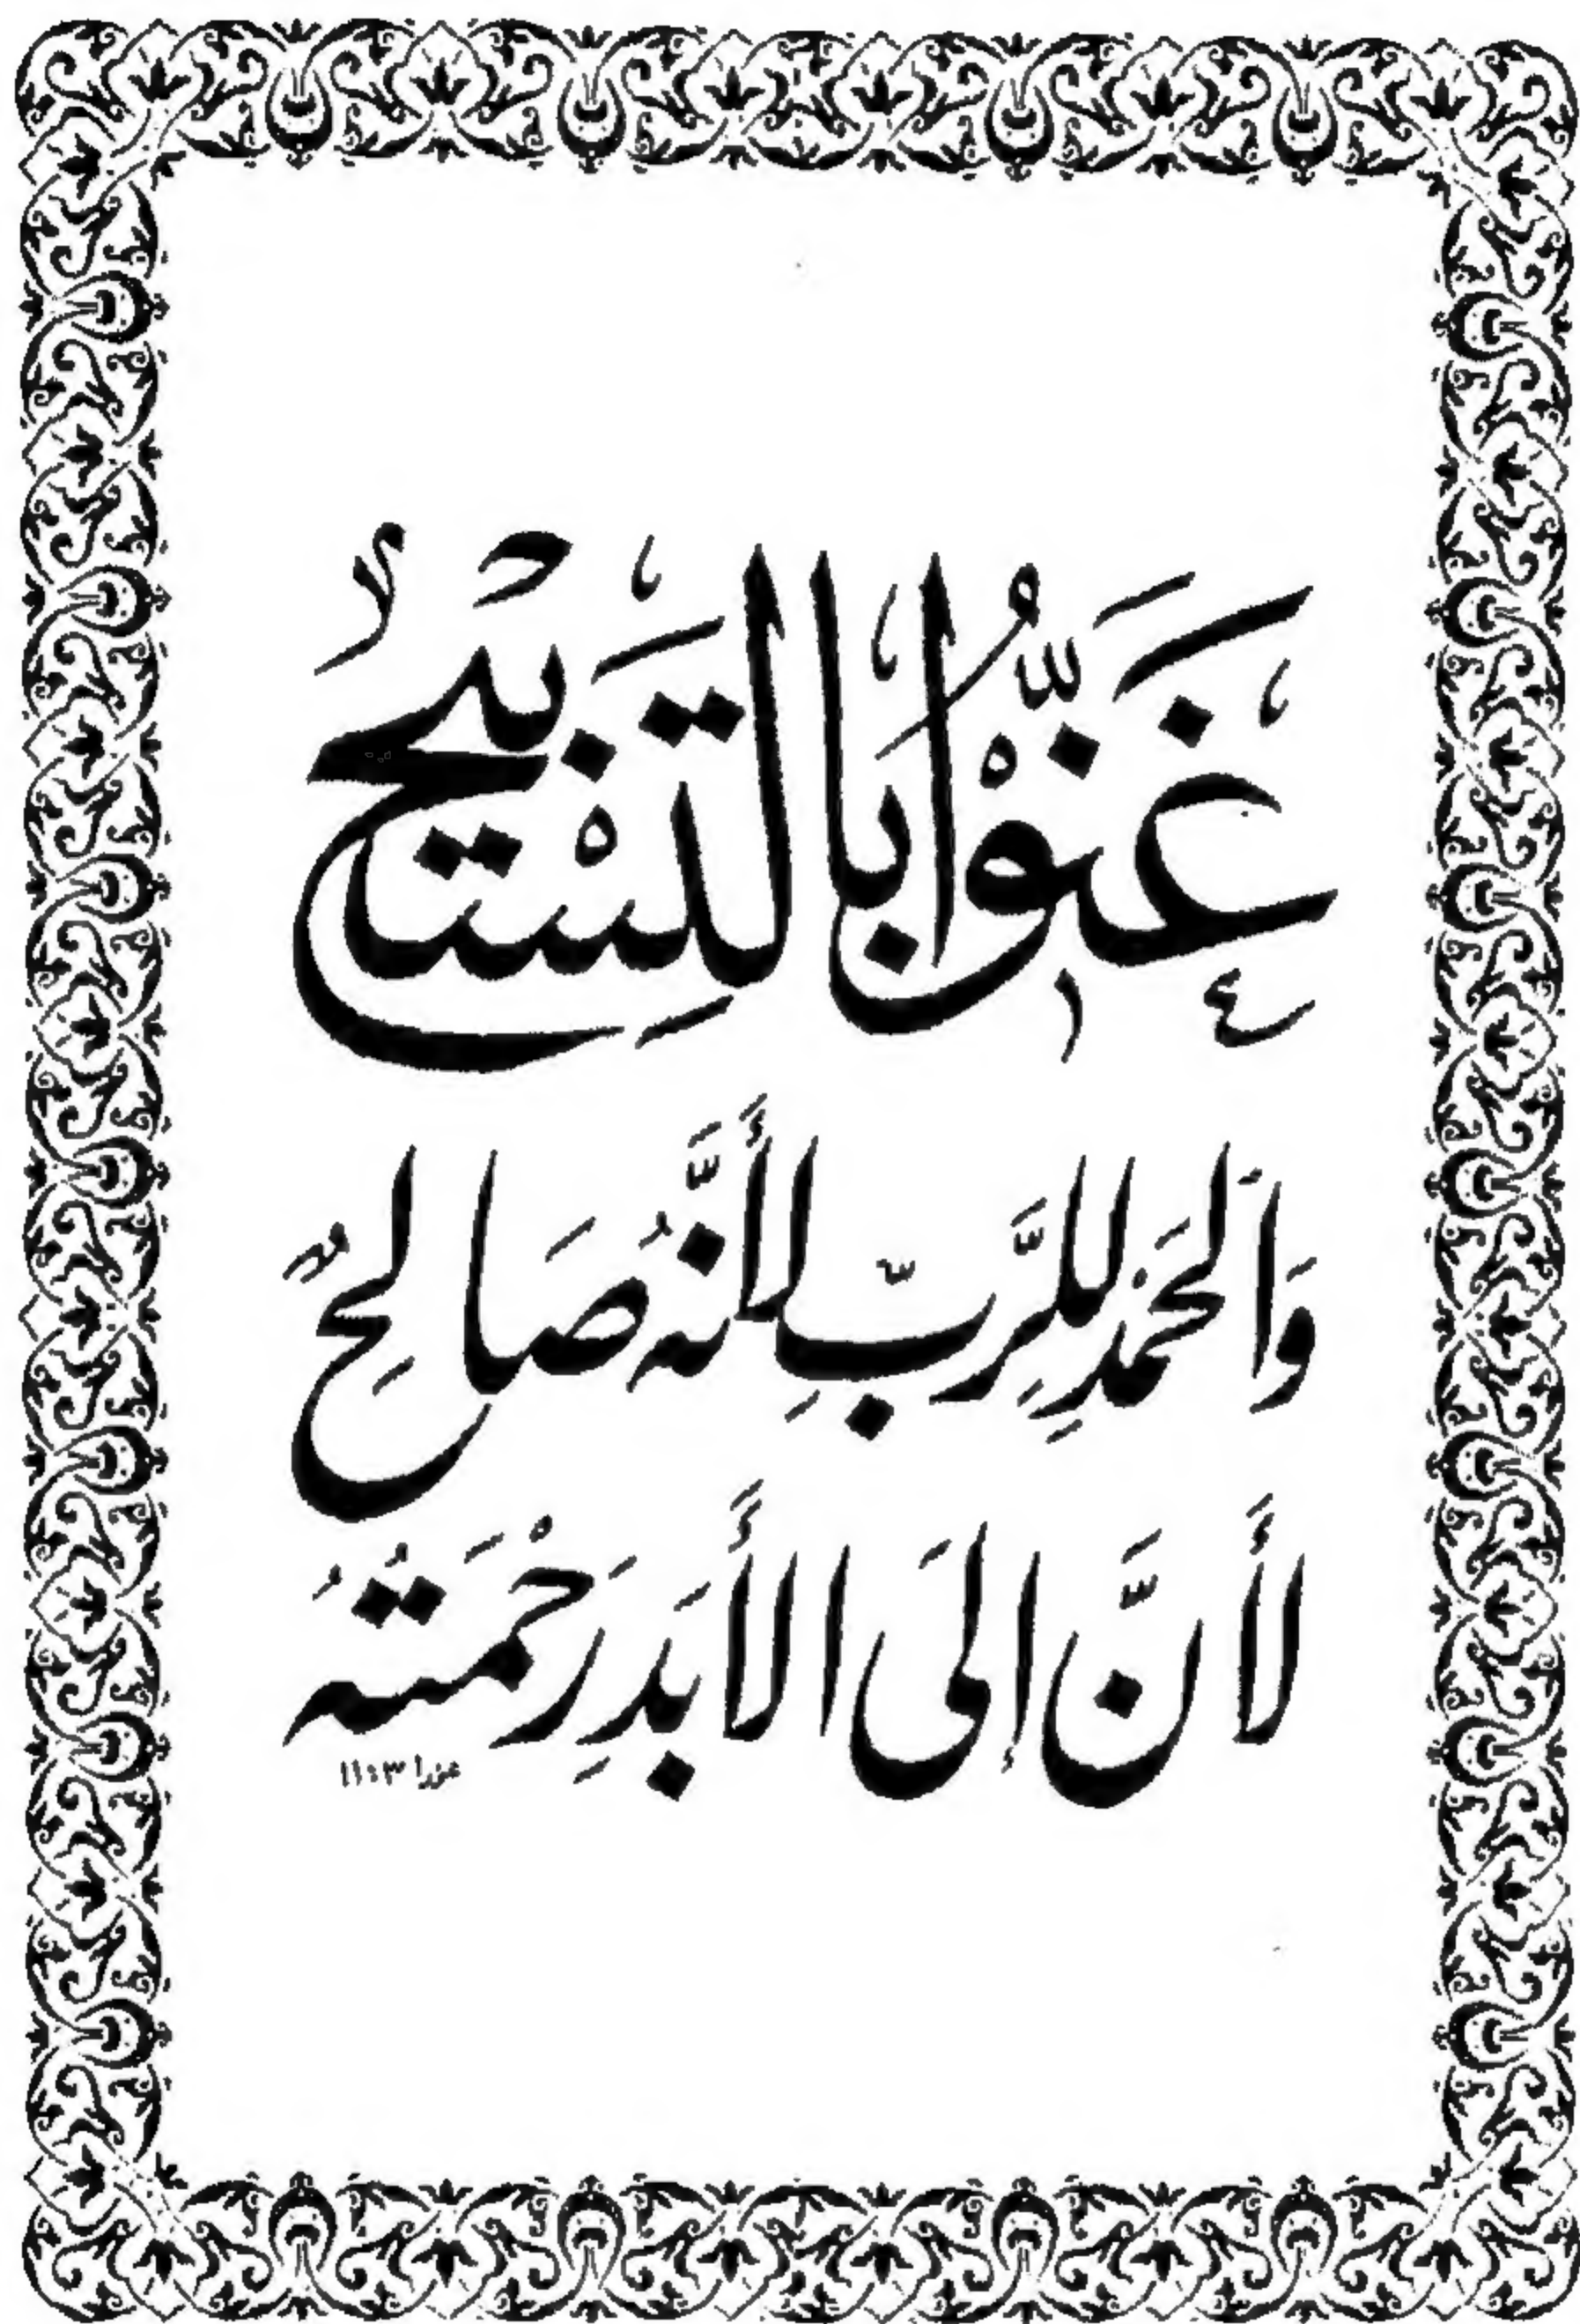 غَنُّوْا بَالتَسْبِيْحِ
وَاَلحَمْدِ لِلرَّبِّ لِأَنَّهُ صَالِحٌ
لأَنَّ إِلَى الأَبَدِ رَحْمَتَهُ
عزرا ٣:١١